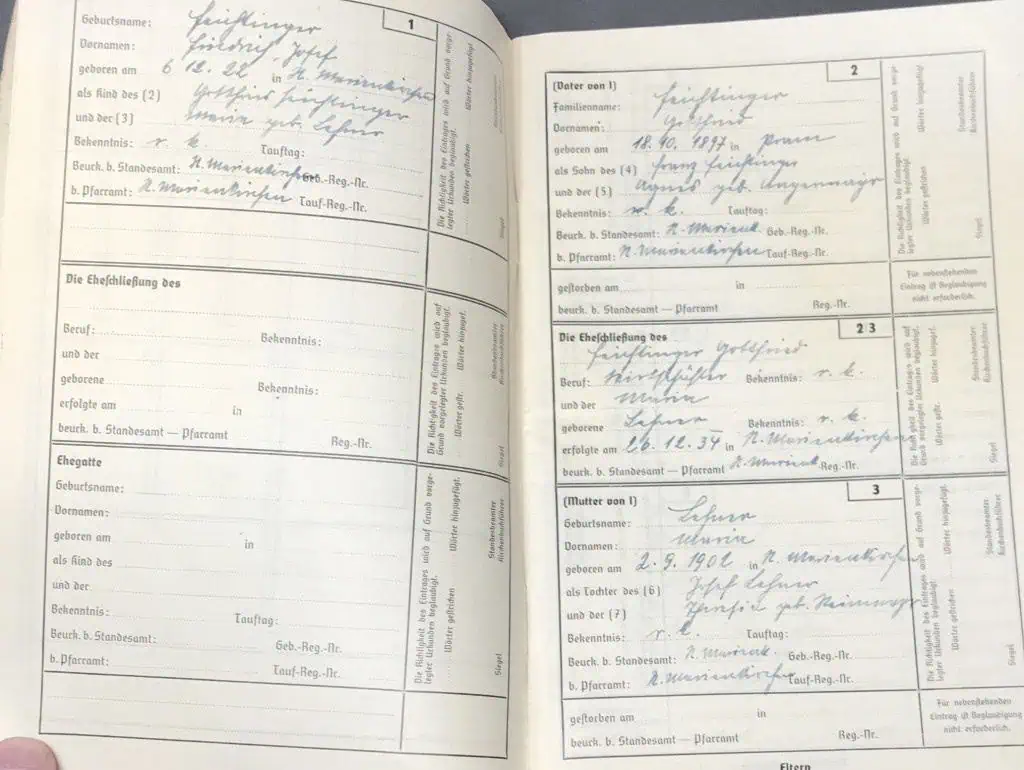 1
Geburtsname: Feichtinger
Vornamen: Friedrich Josef
geboren am 6 12. 22 in N. Marienkirchen
als Kind des (2) Gottfried Feichtinger
und der (3) Maria geb. Lehner
Bekenntnis: r. k. Tauftag:
Beurk. b. Standesamt: N. Marienkirchen Geb.-Reg.-Nr.
b. Pfarramt: N. Marienkirchen Tauf-Reg.-Nr.
Die Richtigkeit des Eintrages wird auf Grund vorge-
legter Urkunden beglaubigt.
Wörter gestrichen Wörter hinzugefügt.
Siegel
Die Eheschließung des
Beruf: Bekenntnis:
und der
geborene Bekenntnis:
erfolgte am in
beurk. b. Standesamt — Pfarramt Reg.-Nr.
Die Richtigkeit des Eintrages wird auf
Grund vorgelegter Urkunden beglaubigt.
Wörter gestr. Wörter hinzugef.
Standesbeamter
Kirchenbuchführer
Siegel
Ehegatte
Geburtsname:
Vornamen:
geboren am in
als Kind des
und der
Bekenntnis: Tauftag:
Beurk. b. Standesamt: Geb.-Reg.-Nr.
b. Pfarramt: Tauf-Reg.-Nr.
Die Richtigkeit des Eintrages wird auf Grund vorge-
legter Urkunden beglaubigt.
Wörter gestrichen Wörter hinzugefügt.
Standesbeamter
Kirchenbuchführer
Siegel
2
(Vater von 1)
Familienname: Feichtinger
Vornamen: Gottfried
geboren am 18. 10. 1897 in Pram
als Sohn des (4) Franz Feichtinger
und der (5) Agnes geb. Angermayr
Bekenntnis: r. k. Tauftag:
Beurk. b. Standesamt: N. Marienk. Geb.-Reg.-Nr.
b. Pfarramt: N. Marienkirchen Tauf-Reg.-Nr.
gestorben am in
beurk. b. Standesamt — Pfarramt Reg.-Nr.
Die Richtigkeit des Eintrages wird auf Grund vorge-
legter Urkunden beglaubigt.
Wörter gestrichen Wörter hinzugefügt
Standesbeamter
Kirchenbuchführer
Siegel
Für nebenstehenden
Eintrag ist Beglaubigung
nicht erforderlich.
2/3
Die Eheschließung des
Feichtinger Gottfried
Beruf: Bekenntnis: r. k.
und der Maria
geborene Lehner Bekenntnis: r. k.
erfolgte am 26. 12. 34 in N. Marienkirchen
beurk. b. Standesamt — Pfarramt N. Marienk. Reg.-Nr.
Die Richtigkeit des Eintrages wird auf
Grund vorgelegter Urkunden beglaubigt.
Wörter gestr. Wörter hinzugef.
Standesbeamter
Kirchenbuchführer
Siegel
3
(Mutter von 1)
Geburtsname: Lehner
Vornamen: Maria
geboren am 2. 9. 1902 in N. Marienkirchen
als Tochter des (6) Josef Lehner
und der (7) Theresia geb.
Bekenntnis: r. k. Tauftag:
Beurk. b. Standesamt: N. Marienk. Geb.-Reg.-Nr.
b. Pfarramt: N. Marienkirchen Tauf-Reg.-Nr.
gestorben am in
beurk. b. Standesamt — Pfarramt Reg.-Nr.
Die Richtigkeit des Eintrages wird auf Grund vorge-
legter Urkunden beglaubigt.
Wörter gestrichen Wörter hinzugefügt.
Standesbeamter
Kirchenbuchführer
Siegel
Für nebenstehenden
Eintrag ist Beglaubigung
nicht erforderlich.
Eltern